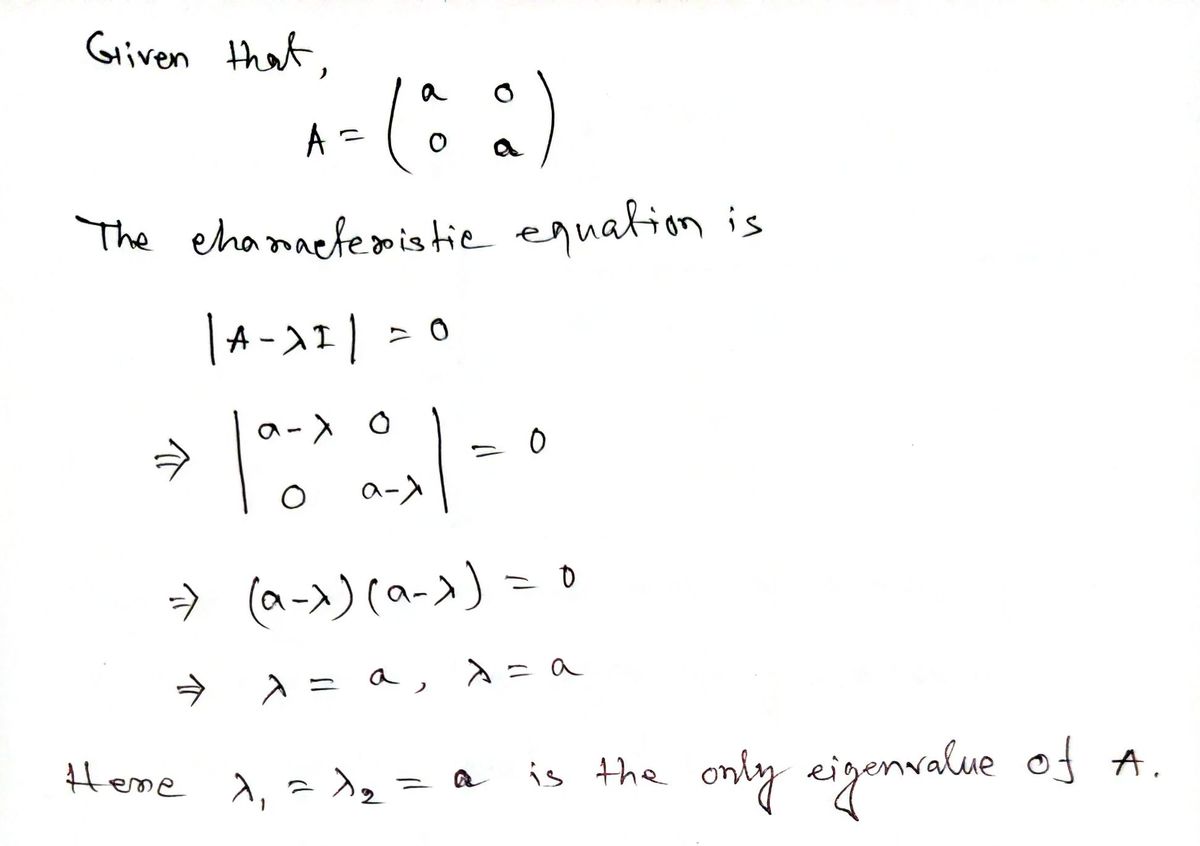 Given that,
A = ( a 0
0 a )
The characteristic equation is
|A-λI| = 0
⇒ | a-λ 0
0 a-λ | = 0
⇒ (a-λ)(a-λ) = 0
⇒ λ = a, λ = a
Here λ₁ = λ₂ = a is the only eigenvalue of A.